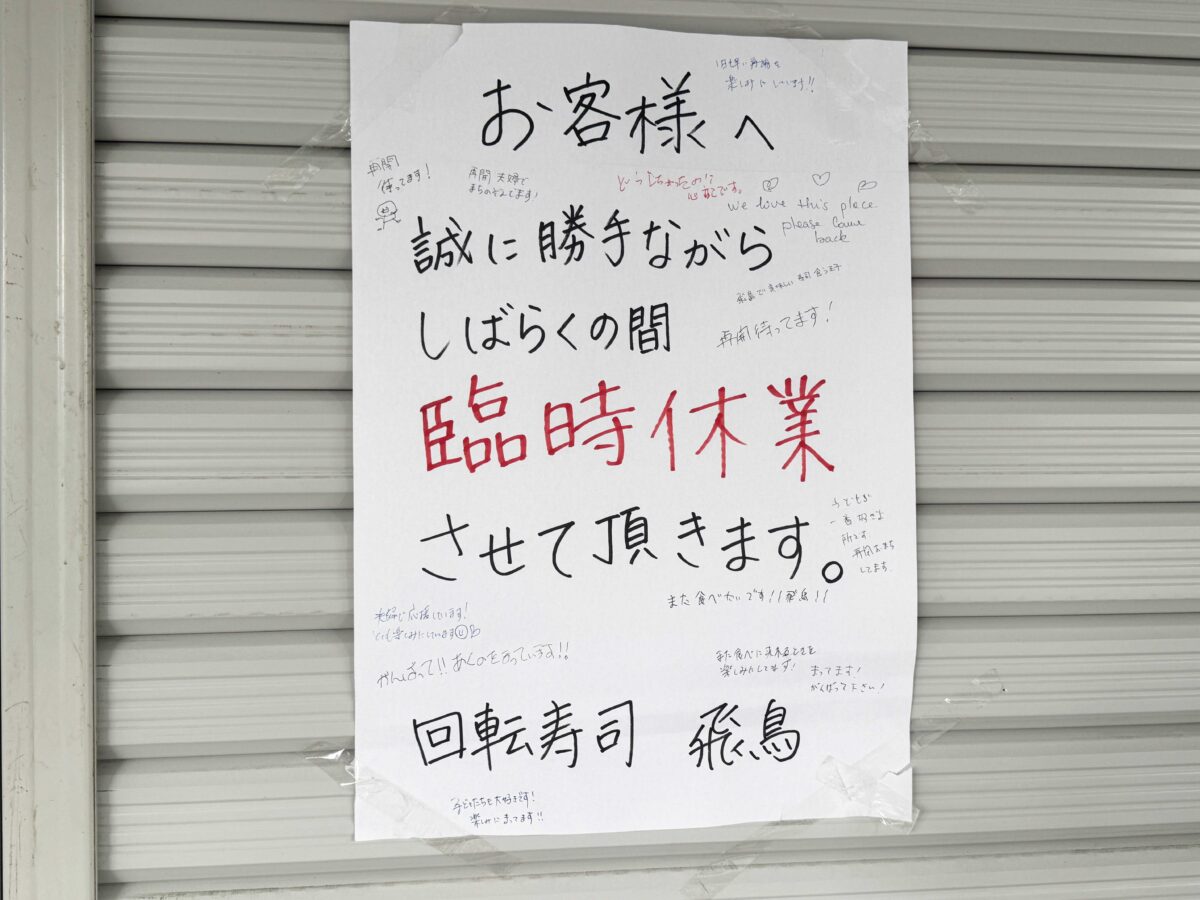 お客様へ
1日も早い再開を
楽しみにしています!!
再開
待ってます!
再開 夫婦で
まちのぞんでます!
どうしちゃったの!?
心配です。
We love this place.
please come
back
誠に勝手ながら
しばらくの間
飛鳥で美味しい寿司
再開待ってます!
臨時休業
させて頂きます。
子どもが
一番好きな
所です
再開おまち
してます.
また食べたいです!!飛鳥!!
夫婦で応援しています!
とても楽しみにしています
がんばって!! あくのをまっています!!
また食べに来れることを
楽しみにしてます!
まってます!
がんばって下さい!
回転寿司 飛鳥
子どもたちも大好きです!
楽しみにまってます!!